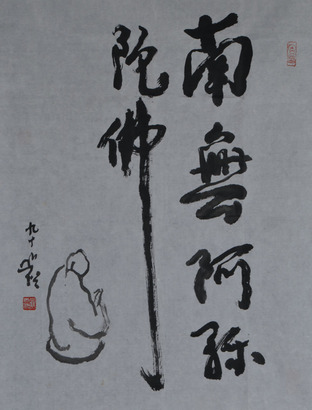 南無阿弥
陀佛
九十